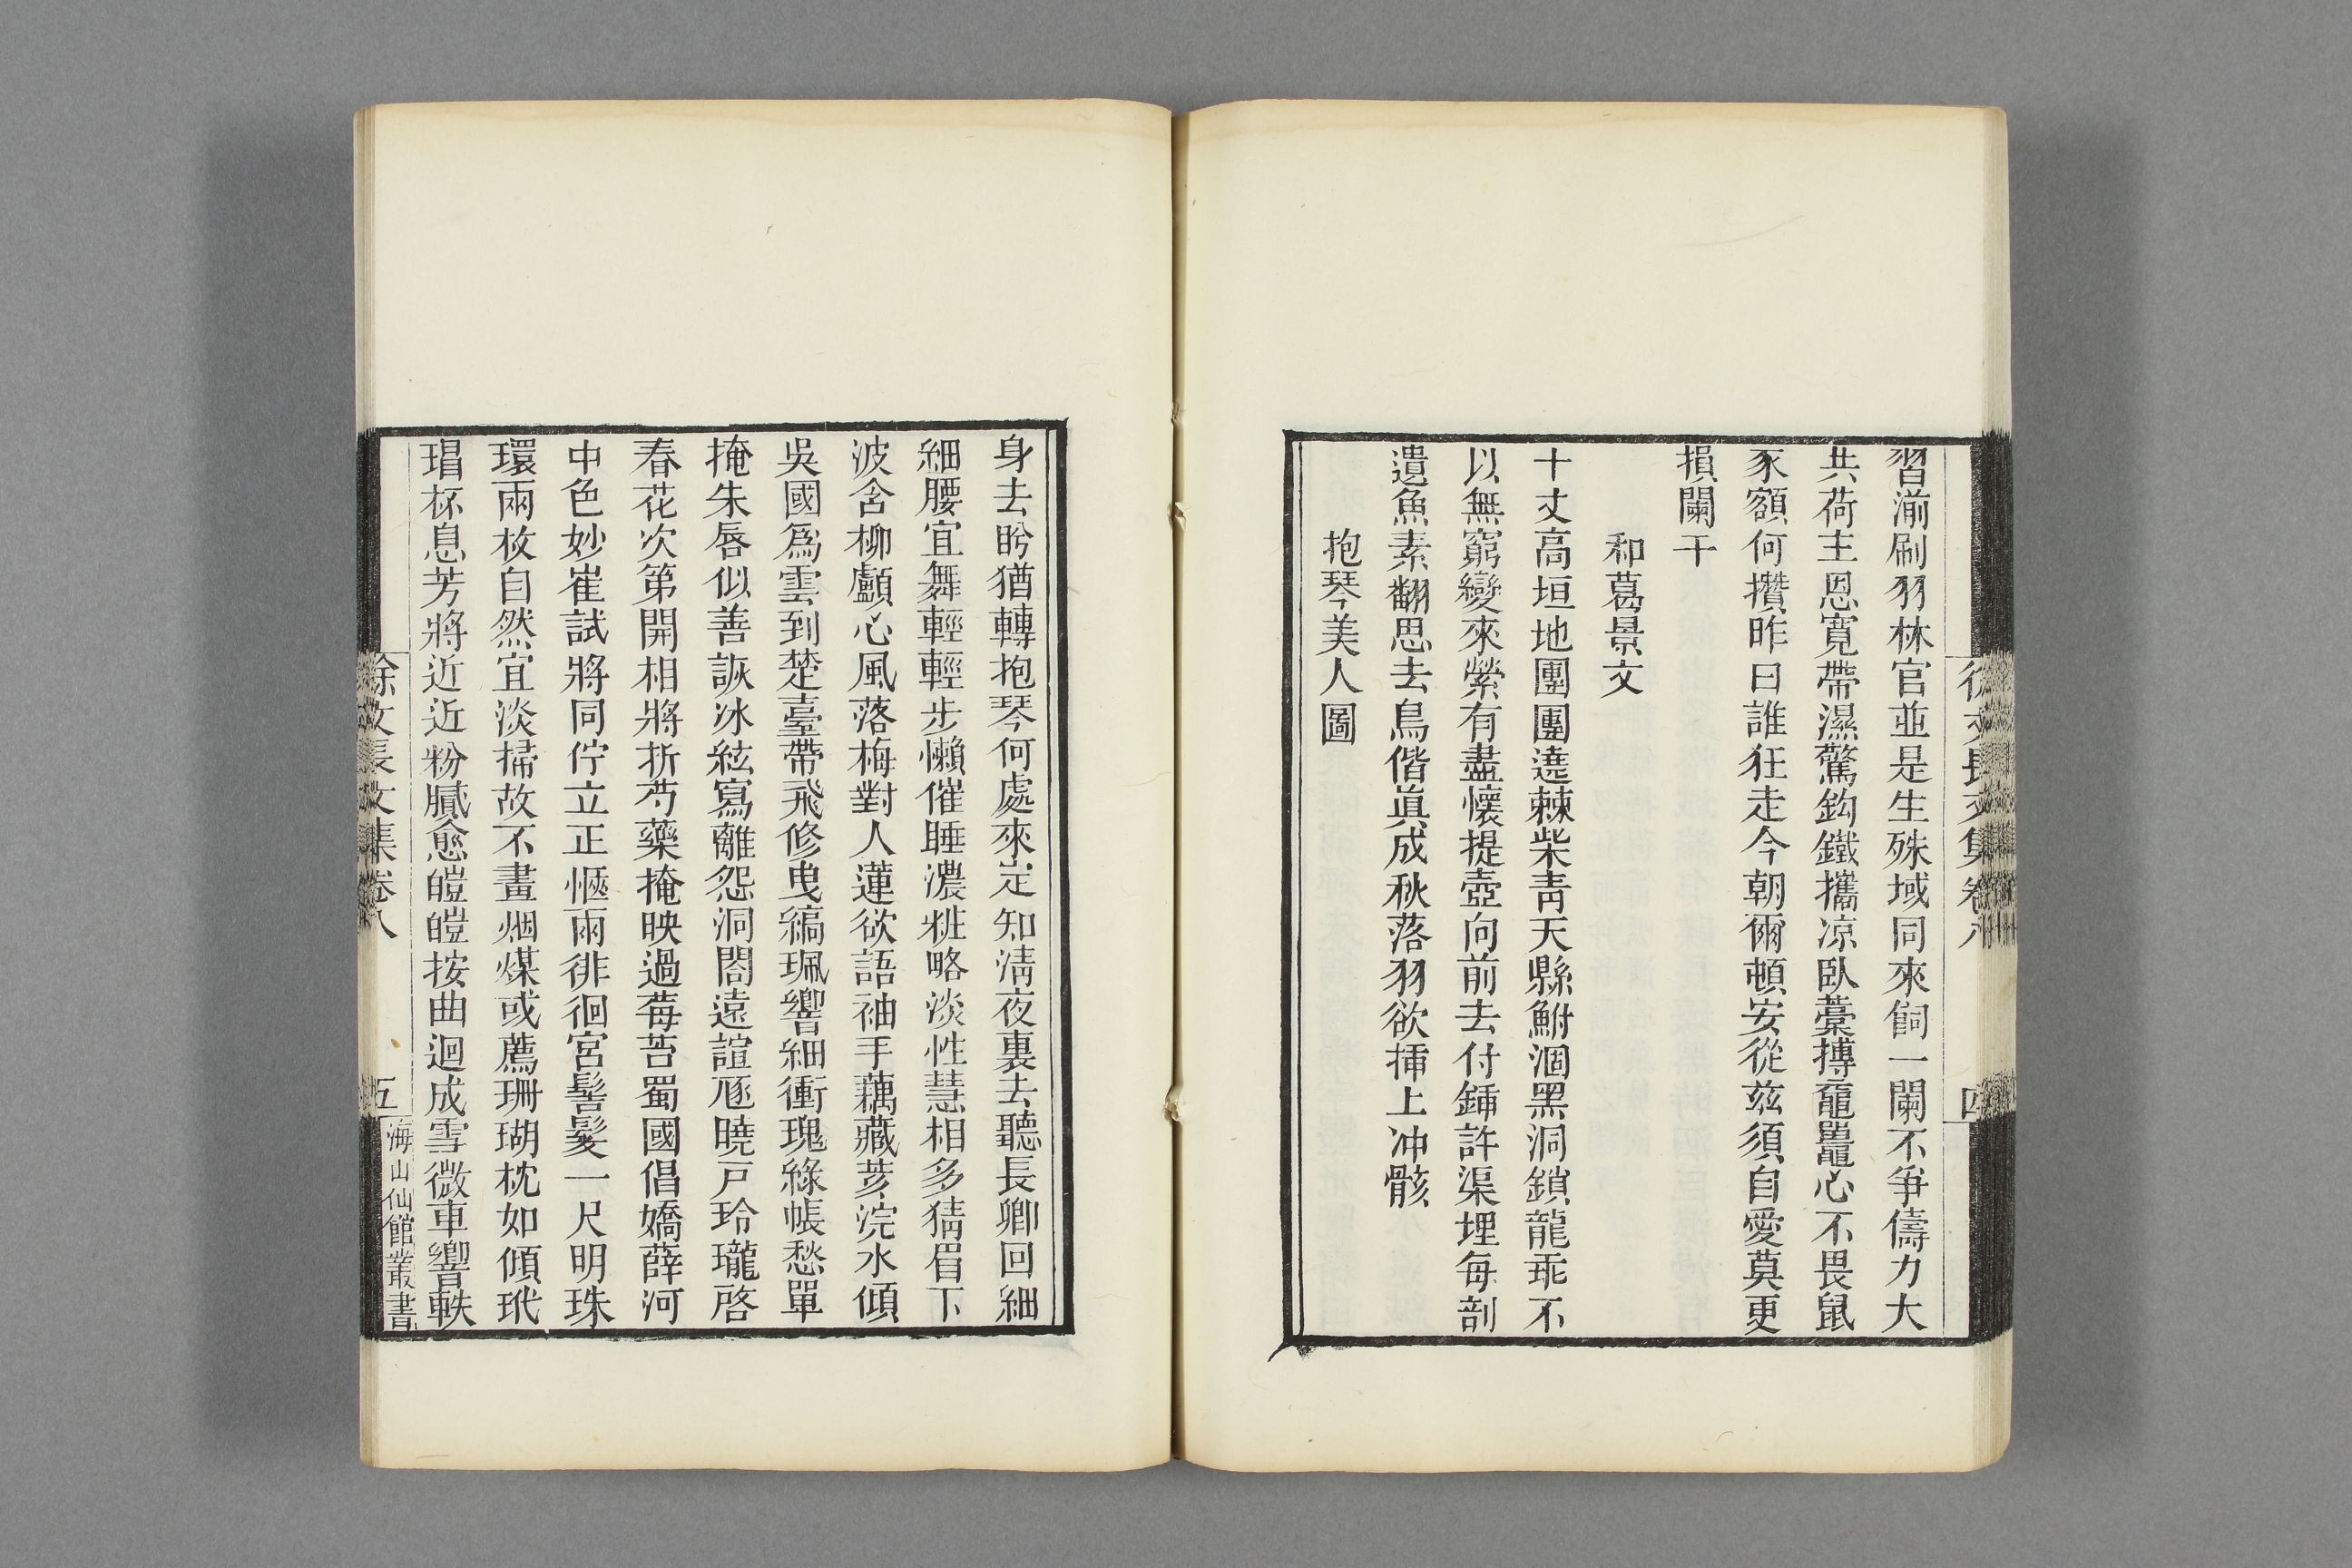 徐文長文集卷八 四
習湔刷羽林官並是生殊域同來飼一闌不爭儔力大
共荷主恩寬帶濕驚鈎鐵攜凉臥藁摶竈鼂心不畏鼠
豕額何攢昨日誰狂走今朝爾頓安從兹須自愛莫更
損闌干
和葛景文
十丈高垣地團團遶棘柴青天縣鮒涸黑洞鎖龍乖不
以無窮變來縈有盡懷提壺向前去付鍤許渠埋每剖
遺魚素翻思去鳥偕眞成秋落羽欲揷上冲骸
抱琴美人圖
身去盻猶轉抱琴何處來定知淸夜裏去聽長卿回細
細腰宜舞輕輕步懶催睡濃粧略淡性慧相多猜眉下
波含柳顱心風落梅對人蓮欲語袖手藕藏荄浣水傾
吳國爲雲到楚臺帶飛修曳縞珮響細衝瑰綠帳愁單
掩朱唇似善詼冰絃寫離怨洞閤遠諠豗曉戸玲瓏啓
春花次第開相將折芍藥掩映過莓苔蜀國倡嬌薛河
中色妙崔試將同佇立正愜兩徘徊宮髻髮一尺明珠
環兩枚自然宜淡掃故不畫烟煤或薦珊瑚枕如傾玳
瑁杯息芳將近近粉膩愈皚皚按曲迴成雪微車響軼
徐文長文集卷八 五 海山仙館叢書